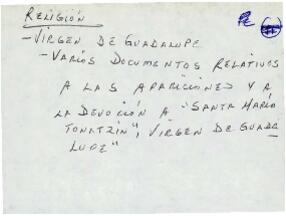 RELIGIÓN
- VIRGEN DE GUADALUPE
- VARIOS DOCUMENTOS RELATIVOS
A LAS APARICIONES Y A
LA DEVOCIÓN A "SANTA MARÍA
TONATZIN", VIRGEN DE GUADA
LUPE"